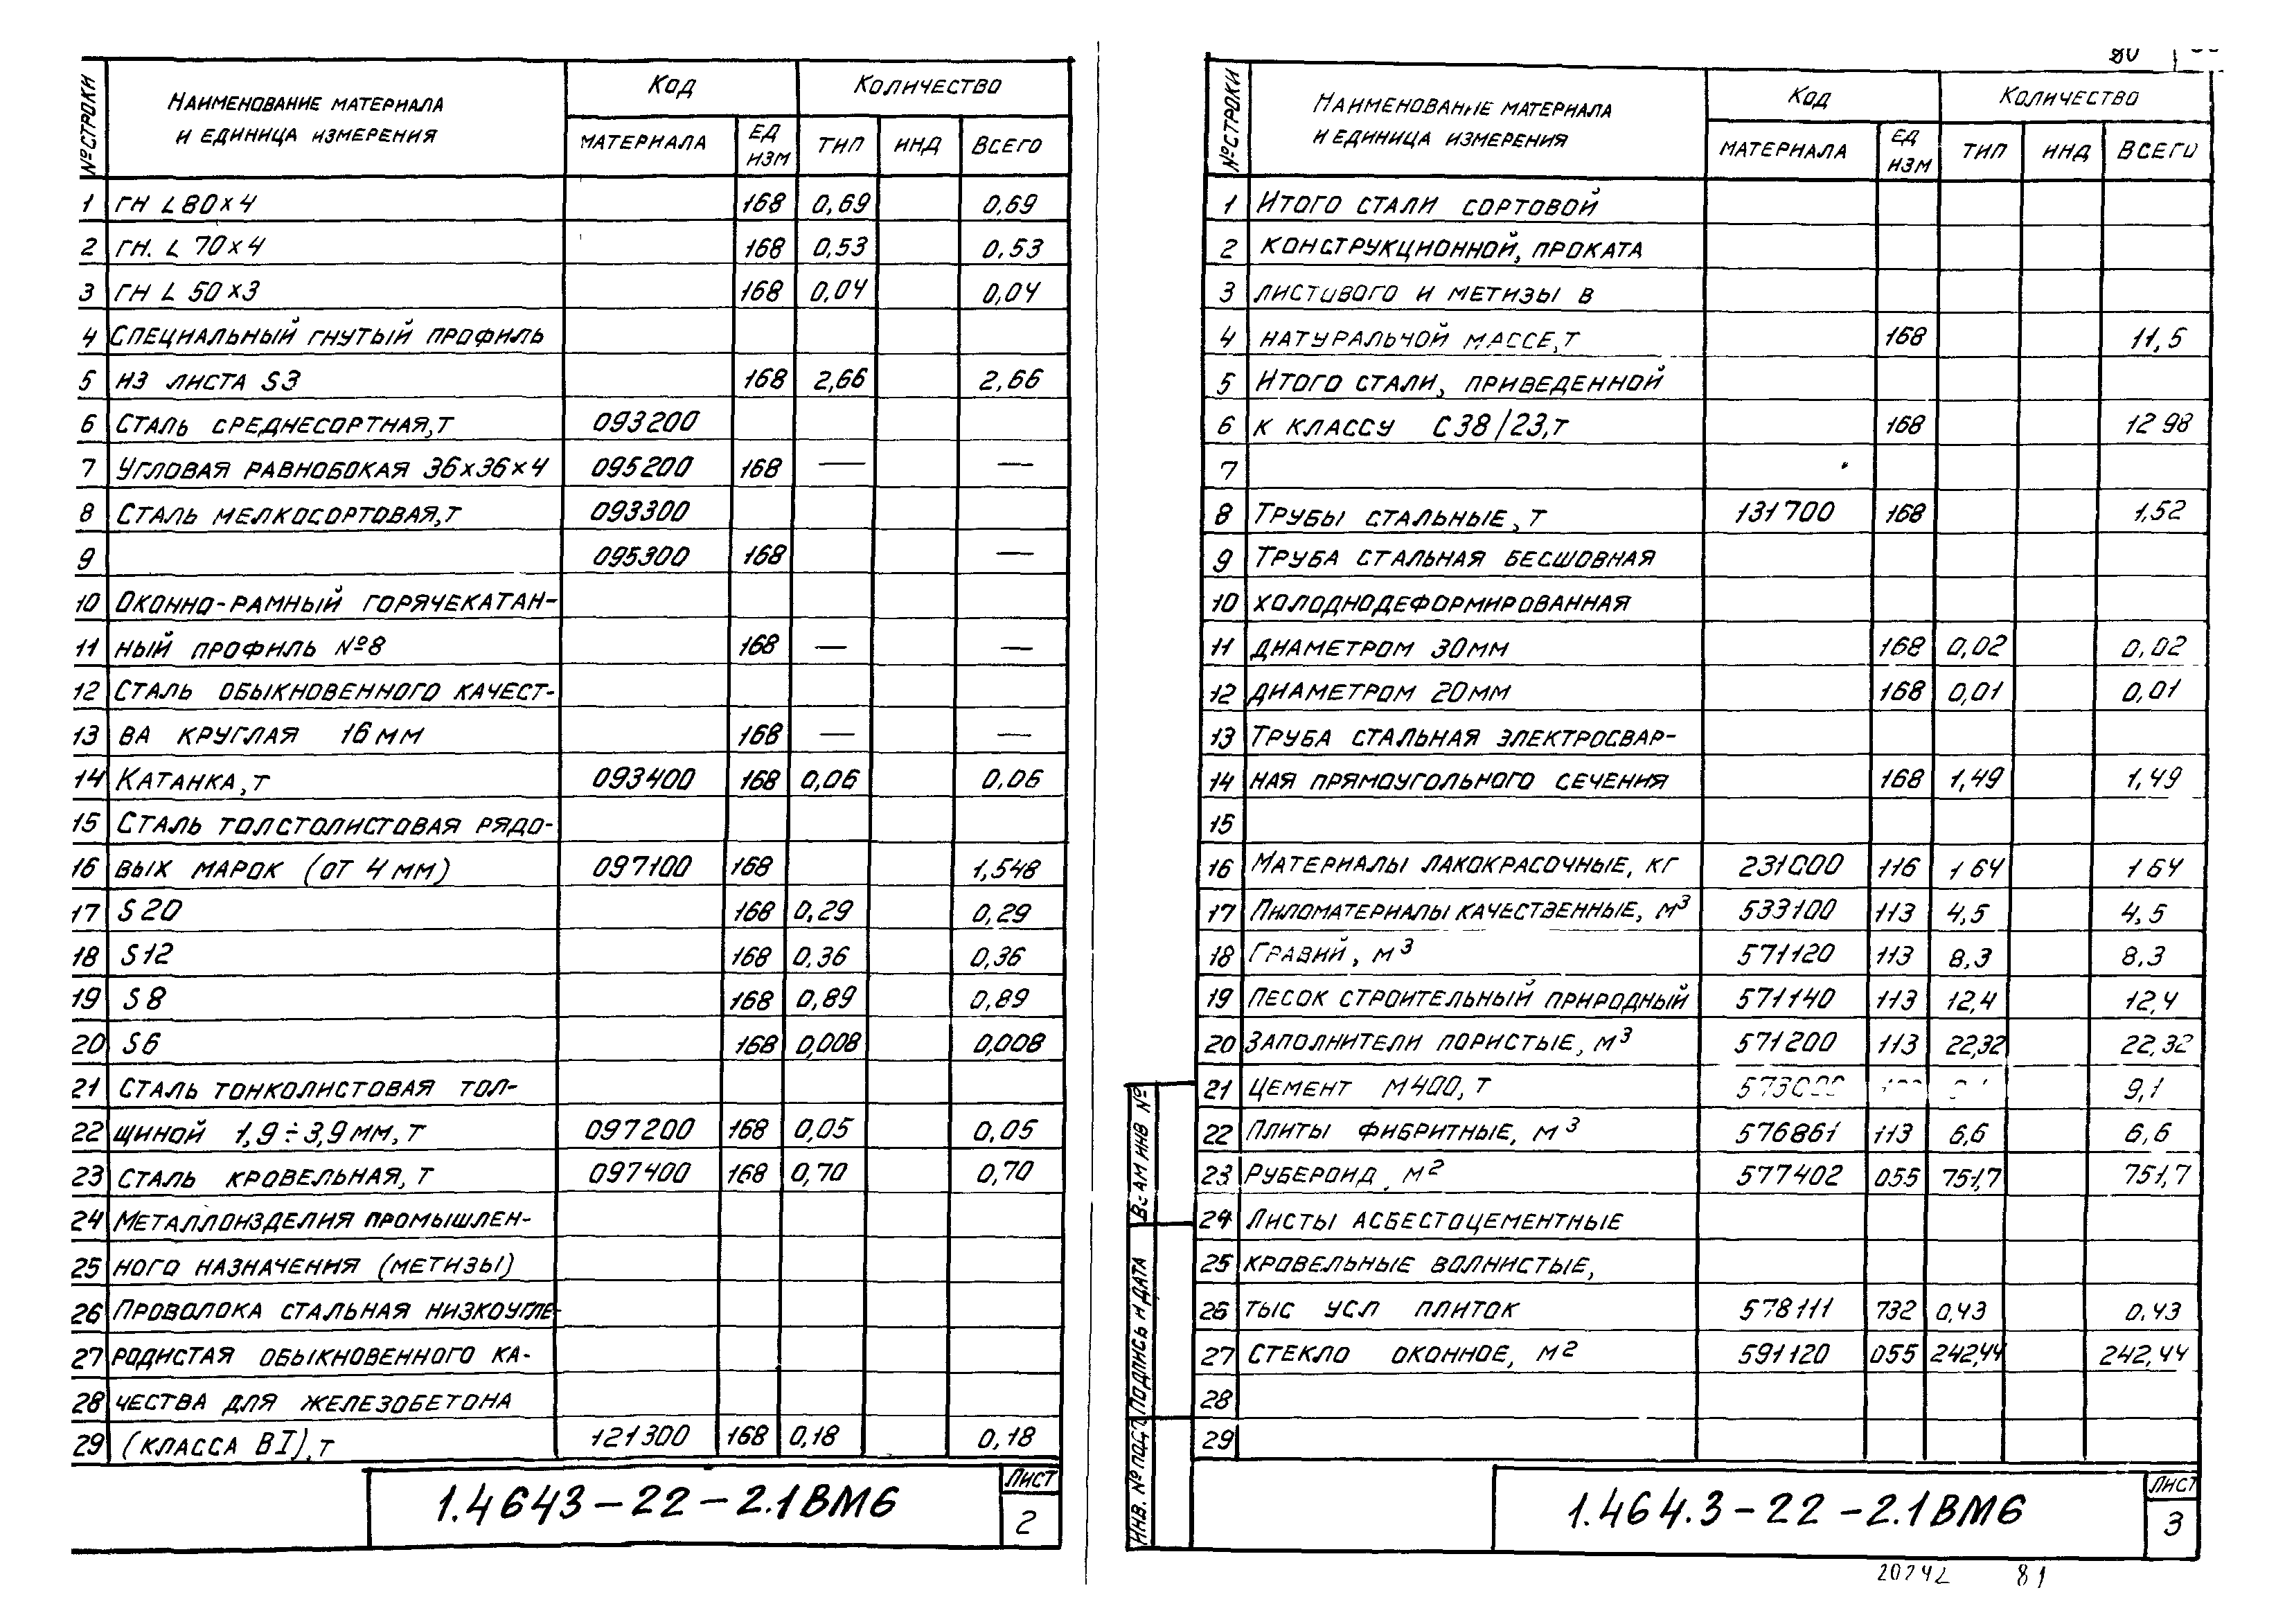 № СТРОКИ
НАИМЕНОВАНИЕ МАТЕРИАЛА
И ЕДИНИЦА ИЗМЕРЕНИЯ
КОД
КОЛИЧЕСТВО
МАТЕРИАЛА ЕД ИЗМ ТИП ИНД ВСЕГО
1 ГН L 80×4 168 0,69 0,69
2 ГН. L 70×4 168 0,53 0,53
3 ГН L 50×3 168 0,04 0,04
4 СПЕЦИАЛЬНЫЙ ГНУТЫЙ ПРОФИЛЬ
5 ИЗ ЛИСТА S3 168 2,66 2,66
6 СТАЛЬ СРЕДНЕСОРТНАЯ, Т 093200
7 УГЛОВАЯ РАВНОБОКАЯ 36×36×4 095200 168 — —
8 СТАЛЬ МЕЛКОСОРТОВАЯ, Т 093300
9 095300 168 —
10 ОКОННО-РАМНЫЙ ГОРЯЧЕКАТАН-
11 НЫЙ ПРОФИЛЬ №8 168 — —
12 СТАЛЬ ОБЫКНОВЕННОГО КАЧЕСТ-
13 ВА КРУГЛАЯ 16 ММ 168 — —
14 КАТАНКА, Т 093400 168 0,06 0,06
15 СТАЛЬ ТОЛСТОЛИСТОВАЯ РЯДО-
16 ВЫХ МАРОК (ОТ 4 ММ) 097100 168 1,548
17 S 20 168 0,29 0,29
18 S 12 168 0,36 0,36
19 S 8 168 0,89 0,89
20 S6 168 0,008 0,008
21 СТАЛЬ ТОНКОЛИСТОВАЯ ТОЛ-
22 ЩИНОЙ 1,9÷3,9 ММ, Т 097200 168 0,05 0,05
23 СТАЛЬ КРОВЕЛЬНАЯ, Т 097400 168 0,70 0,70
24 МЕТАЛЛОИЗДЕЛИЯ ПРОМЫШЛЕН-
25 НОГО НАЗНАЧЕНИЯ (МЕТИЗЫ)
26 ПРОВОЛОКА СТАЛЬНАЯ НИЗКОУГЛЕ-
27 РОДИСТАЯ ОБЫКНОВЕННОГО КА-
28 ЧЕСТВА ДЛЯ ЖЕЛЕЗОБЕТОНА
29 (КЛАССА ВI), Т 121300 168 0,18 0,18
1.4643-22-2.1ВМ6
ЛИСТ
2
80
№ СТРОКИ
НАИМЕНОВАНИЕ МАТЕРИАЛА
И ЕДИНИЦА ИЗМЕРЕНИЯ
КОД
КОЛИЧЕСТВО
МАТЕРИАЛА ЕД ИЗМ ТИП ИНД ВСЕГО
1 ИТОГО СТАЛИ СОРТОВОЙ
2 КОНСТРУКЦИОННОЙ, ПРОКАТА
3 ЛИСТОВОГО И МЕТИЗЫ В
4 НАТУРАЛЬНОЙ МАССЕ, Т 168 11,5
5 ИТОГО СТАЛИ, ПРИВЕДЕННОЙ
6 К КЛАССУ С38/23, Т 168 12 98
7
8 ТРУБЫ СТАЛЬНЫЕ, Т 131700 168 1,52
9 ТРУБА СТАЛЬНАЯ БЕСШОВНАЯ
10 ХОЛОДНОДЕФОРМИРОВАННАЯ
11 ДИАМЕТРОМ 30 ММ 168 0,02 0,02
12 ДИАМЕТРОМ 20 ММ 168 0,01 0,01
13 ТРУБА СТАЛЬНАЯ ЭЛЕКТРОСВАР-
14 НАЯ ПРЯМОУГОЛЬНОГО СЕЧЕНИЯ 168 1,49 1,49
15
16 МАТЕРИАЛЫ ЛАКОКРАСОЧНЫЕ, КГ 231000 116 164 164
17 ПИЛОМАТЕРИАЛЫ КАЧЕСТВЕННЫЕ, М³ 533100 113 4,5 4,5
18 ГРАВИЙ, М³ 571120 113 8,3 8,3
19 ПЕСОК СТРОИТЕЛЬНЫЙ ПРИРОДНЫЙ 571140 113 12,4 12,4
20 ЗАПОЛНИТЕЛИ ПОРИСТЫЕ, М³ 571200 113 22,32 22,32
21 ЦЕМЕНТ М400, Т 9,1
22 ПЛИТЫ ФИБРИТНЫЕ, М³ 576861 113 6,6 6,6
23 РУБЕРОИД, М² 577402 055 751,7 751,7
24 ЛИСТЫ АСБЕСТОЦЕМЕНТНЫЕ
25 КРОВЕЛЬНЫЕ ВОЛНИСТЫЕ,
26 ТЫС УСЛ ПЛИТОК 578111 732 0,43 0,43
27 СТЕКЛО ОКОННОЕ, М² 591120 055 242,44 242,44
28
29
ВЗАМ ИНВ №
ПОДПИСЬ И ДАТА
ИНВ. № ПОДЛ
1.464.3-22-2.1ВМ6
ЛИСТ
3
20242 81